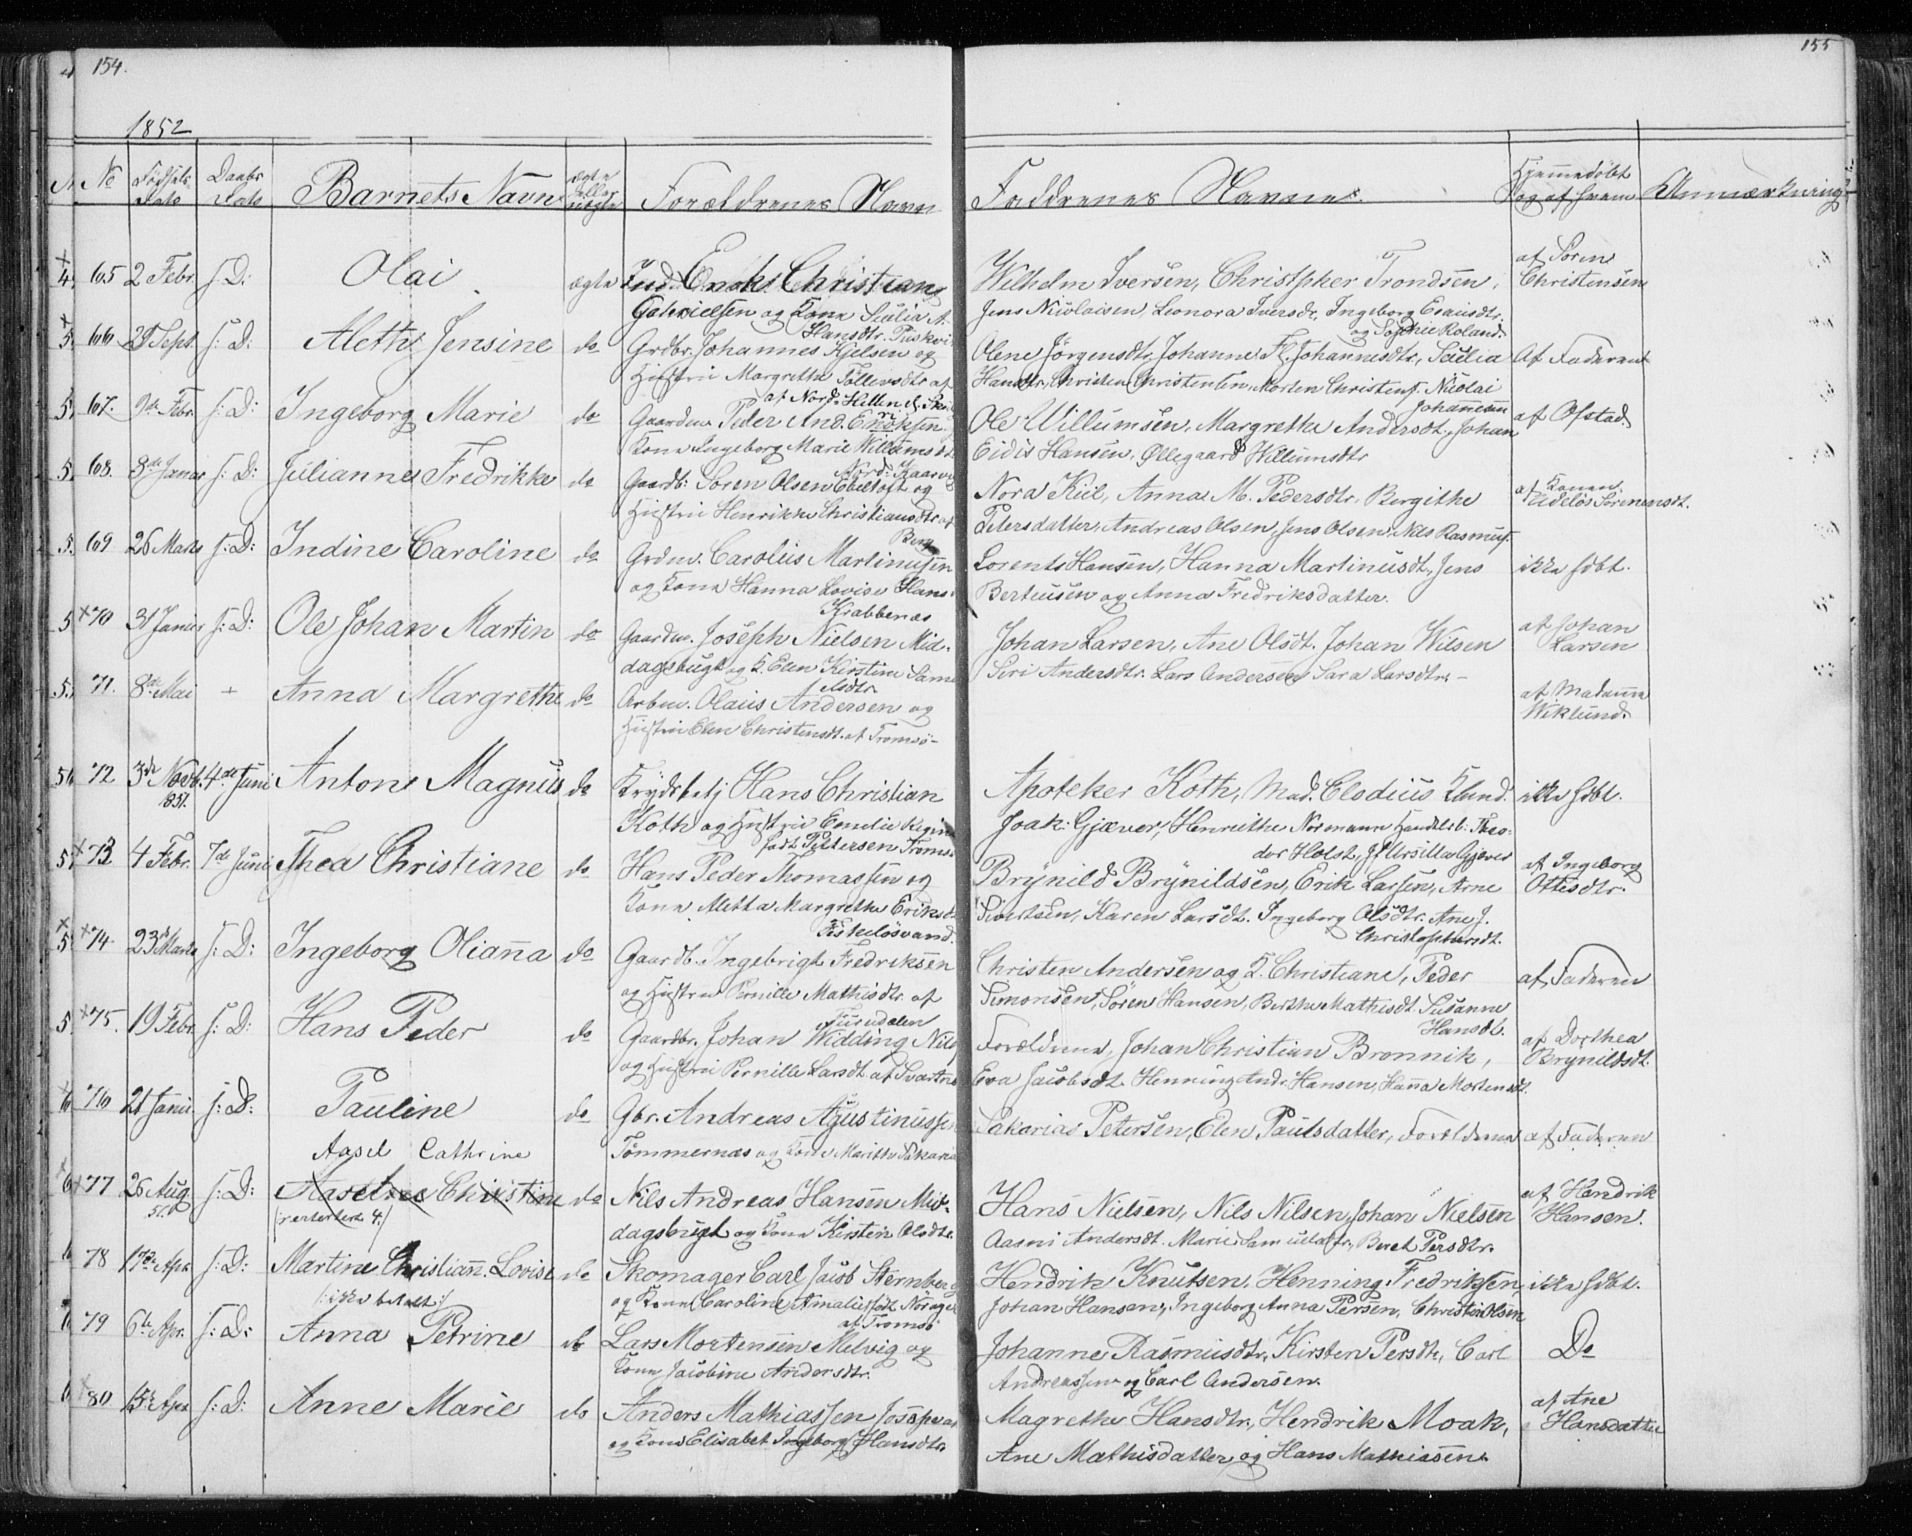 154.
155
1852
No
Fødsels Dato
Daabs Dato
Barnets Navn
ægte eller uægte
Forældrenes Navn
Faddrenes Navne.
Hjemmedöbt og af hvem
Anmærkning
65 2 Febr. s: D: Olai ægte Ind. Enoks Christian
Gabrielsen og Kone
Wilhelm Iversen, Christopher Trondsen,
Jens Nicolaisen, Leonora Iversdr, Ingeborg Esaiasdtr.
og Sophie Roland.
af Sören
Christensen
66 29 Sept. s: D: Aleth Jensine do Grdbr. Johannes Kjelsen og
Hustru Margrethe Tollevsdtr af
Olene Jörgensdtr, Johanne F. Johannesdtr,
Hansdtr, Christen Christensen, Morten Christens. Nicolai
Johannesen
Af Faderen
67. 9de Febr. s: D: Ingeborg Marie do Gaardm. Peder And. Enoksen
Kone Ingeborg Marie Willumsd
Ole Willumsen, Margrethe Andersdt., Johan
Eidis Hansen, Øllegaard Willumsdtr
af Ofstad.
68. 8de Januar s: D: Julianne Fredrikke do Gaardb: Sören Olsen Ebeltoft og
Hustru Henrikke Christiansdtr af
Nora Kiil, Anna M. Pedersdtr, Bergithe
Petersdatter, Andreas Olsen, Jens Olsen, Nils Rasmus.
af Konen
Sörensdt.
69 26 Marts s: D: Indine Caroline do Grdm. Carolus Martinusen
og Kone Hanna Lovise Hans
Lorents Hansen, Hanna Martinusdt, Jens
Berteusen og Anna Fredriksdatter.
ikke hdbt.
70 31 Januar s: D: Ole Johan Martin do Gaardm. Joseph Nielsen Mid-
dagsbugt og K. Elen Kirstine Samu
elsdtr.
Johan Larsen, Ane Olsdt. Johan Nilsen
Siri Andersdtr. Lars Andersen Sara Larsdtr. -
af Johan
Larsen
71. 8de Mai + Anna Margrethe do Arbm. Olaus Andersen og
Hustru Elen Christensdt. af Tromsö -
af Madama
Wiklund.
72 3de Novb. 1851. 4de Juni Antone Magnus do Hans Christian
Koth og Hustru Emelie Regine
født Pettersen Tromsö
Apoteker Koth, Mad. Clodius
Joak: Gjæver, Henriethe Normann Handelsb: Theo-
dor Holst, Jf Ursilla Gjæver
ikke hdbt.
73 4 Febr. 7de Juni Thea Christiane do Hans Peder Thomassen og
Kone Metta Margrethe Eriksd
Fiskelösvand.
Brynild Brynildsen, Erik Larsen, Arne
Sivertsen, Karen Larsdt. Ingeborg Olsdtr. Ane J.
Christophersdt.
af Ingeborg
Ottesdtr.
74 23 Marts s: D: Ingeborg Olianna do Gaardb. Ingebrigt Fredriksen
og Hustru Pernille Mathisdtr. af
Christen Andersen og K. Christiane, Peder
Simonsen, Sören Hansen, Berthe Mathisdt. Susanne
Hansdt.
af Faderen
75. 19 Febr. s: D: Hans Peder do Gaardbr. Johan Widding Nils
og Hustru Pernille Larsdt af Svartnes
Forældrene, Johan Christian Brennik,
Eva Jacobsdt Henning Andr. Hansen, Hanna Mortensdt.
af Dorthea
Brynildsdt.
76 21 Janu. s: D: Pauline do Gbr. Andreas Agustinusse
Tömmernæs og Kone Marithe Sakaria
Sakarias Petersen, Elen Paulsdatter, Forældrene
af Faderen
Aasel Cathrine
77 26 Aug. 51. s: D: Christine do Nils Andreas Hansen Mid-
dagsbugt og Kone Kirsten Olsdtr.
Hans Nielsen, Nils Nilsen, Johan Nielsen
Aasni Andersdt. Marie Samuelsdtr, Beret Persdtr.
af Hendrik
Hansen.
78 17de Apr. s: D: Martine Christiann. Lovise do Skomager Carl Jacob Sternberg
(: ikke betalt :) og Kone Caroline Amalie født Norager
af Tromsö
Hendrik Knutsen, Henning Fredriksen,
Johan Hansen, Ingeborg Anna Persen, Christin Olsen
ikke hdbt.
79 6te Apr. s: D: Anna Petrine do Lars Mortensen Melvig og
Kone Jacobine Andersdtr.
Johanne Rasmusdtr, Kirsten Persdtr, Carl
Andreassen og Carl Andersen.
Do
80 15de Apr. s: D: Anne Marie do Anders Mathiassen
og Kone Elisabet Ingeborg Hansdtr.
Magrethe Hansdtr, Hendrik Moak,
Ane Mathisdatter og Hans Mathiassen.
af Ane
Hansdatter